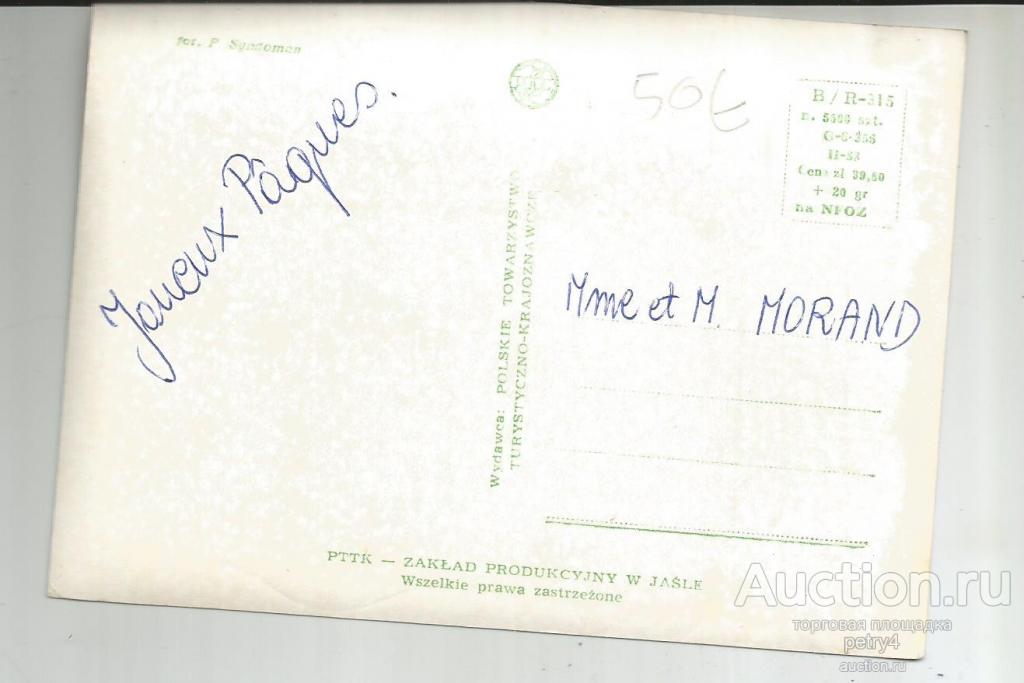 fot. P. Syndoman
Joyeux Pâques.
50t
B / R-315
n. 5000 szt.
H-83
Cena zł 39,80
+ 20 gr
na NFOZ
Mme et M. MORAND
Wydawca: POLSKIE TOWARZYSTWO
TURYSTYCZNO-KRAJOZNAWCZE
PTTK — ZAKŁAD PRODUKCYJNY W JAŚLE
Wszelkie prawa zastrzeżone
Auction.ru
торговая площадка
petry4
auction.ru